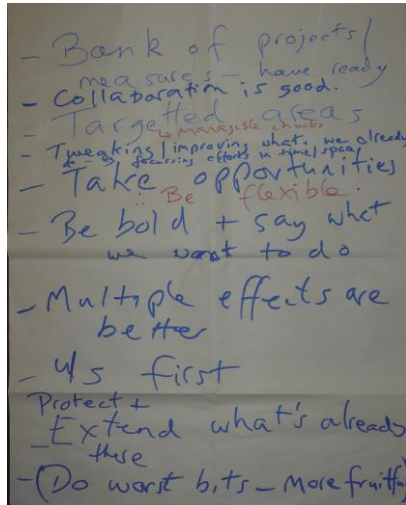 - Bank of projects/
measures - have ready
- Collaboration is good.
- Targetted areas
↳ managable chunks
- Tweaking/improving what we already
do - eg focussing efforts in time/space
- Take opportunities
∴ Be flexible.
- Be bold + say what
we want to do
- Multiple effects are
better
- U/s first
Protect +
- Extend what's already
there
- (Do worst bits - More fruitful